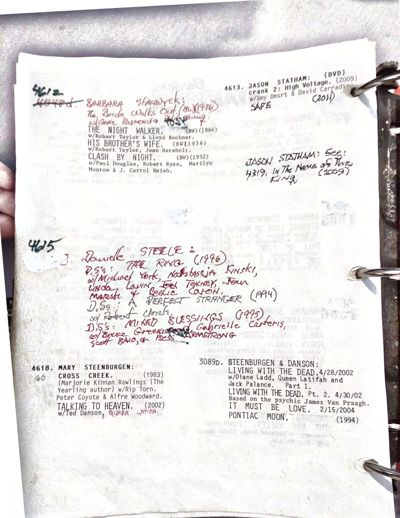 4612
BARBARA STANWYCK:
The Bride Walks Out (BW)(1936)
w/Gene Raymond &
THE NIGHT WALKER. (BW)(1966)
w/Robert Taylor & Lloyd Bochner.
HIS BROTHER'S WIFE. (BW)(1936)
w/Robert Taylor, Jean Hersholt.
CLASH BY NIGHT. (BW)(1952)
w/Paul Douglas, Robert Ryan, Marilyn
Monroe & J. Carrol Naish.
4613. JASON STATHAM: (DVD)
crank 2: High Voltage. (2009)
w/Amy Smart & David Carradine
SAFE (2011)
JASON STATHAM: See:
4319. In The Name of The
King (2008)
4615
Danielle STEELE:
D.S's: THE RING (1996)
w/Michael York, Nastassja Kinski,
Linda Lavin, Jon Tenney,
& Leslie Caron.
D.S's: A PERFECT STRANGER (1994)
w/Robert Urich.
D.S's: MIXED BLESSINGS (1995)
w/Bruce Greenwood, Gabrielle Carteris,
Scott Baio, & Bess ARMSTRONG
4618. MARY STEENBURGEN:
CROSS CREEK. (1983)
(Marjorie Kinnan Rawlings (The
Yearling author) w/Rip Torn,
Peter Coyote & Alfre Woodward.
TALKING TO HEAVEN. (2002)
w/Ted Danson, QUEEN LATIFAH
3089b. STEENBURGEN & DANSON:
LIVING WITH THE DEAD.4/28/2002
w/Diane Ladd, Queen Latifah and
Jack Palance. Part 1.
LIVING WITH THE DEAD, Pt. 2. 4/30/02
Based on the psychic James Van Praagh.
IT MUST BE LOVE. 2/15/2004
PONTIAC MOON. (1994)